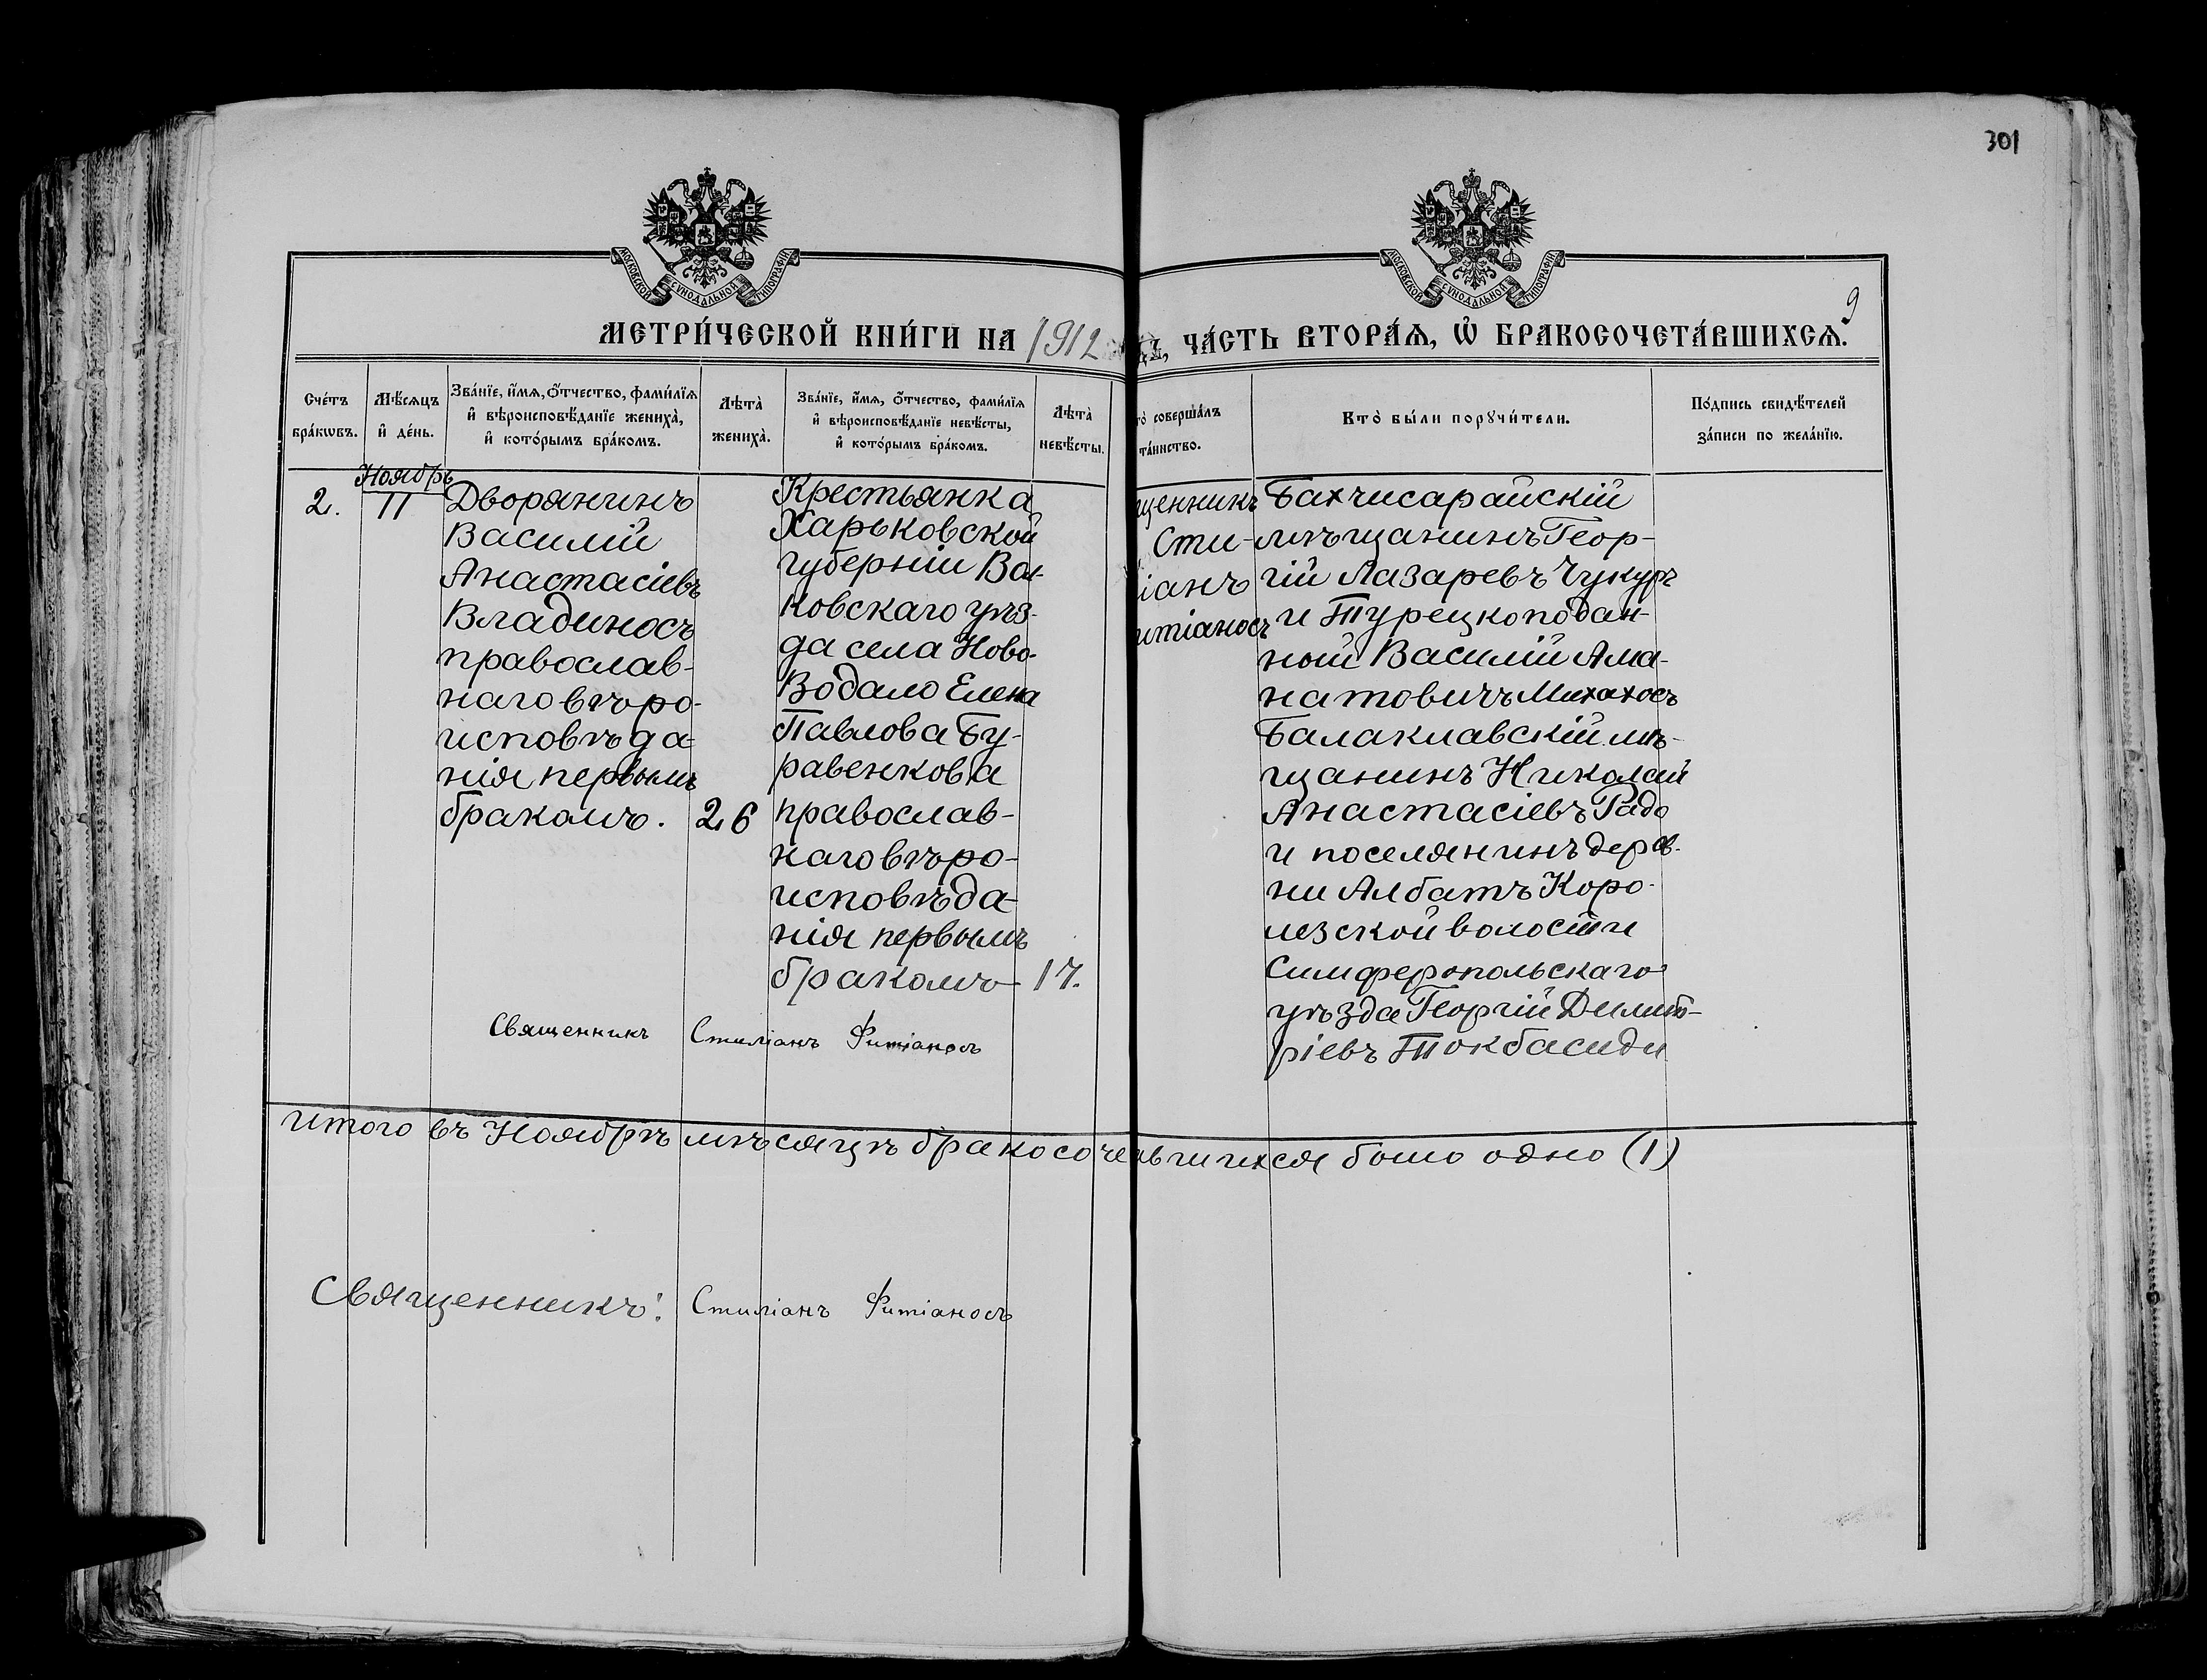 301
МОСКОВСКОЙ СѴНОДАЛЬНОЙ ТИПОГРАФІИ
МОСКОВСКОЙ СѴНОДАЛЬНОЙ ТИПОГРАФІИ
9
МЕТРИ́ЧЕСКОЙ КНИ́ГИ НА 1912
ЧА́СТЬ ВТОРА́Ѧ, Ѿ БРАКОСОЧЕТА́ВШИХСѦ.
Сче́тъ бра́кѡвъ.
Мѣ́сѧцъ и҆ де́нь.
Зва́нїе, и҆́мѧ, ѻ҆́тчество, фами́лїѧ и҆ вѣроисповѣ́данїе жениха̀, и҆ кото́рымъ бра́комъ.
Лѣта̀ жениха̀.
Зва́нїе, и҆́мѧ, ѻ҆́тчество, фами́лїѧ и҆ вѣроисповѣ́данїе невѣ́сты, и҆ кото́рымъ бра́комъ.
Лѣта̀ невѣ́сты.
то̀ соверша́лъ та́инство.
Кто̀ бы́ли порꙋчи́тели.
По́дпись свидѣ́телей за́писи по жела́нїю.
2.
Ноябрь
11
Дворянинъ
Василій
Анастасіевъ
Владиносъ
православ-
наго вѣро-
исповѣда-
нія первымъ
бракомъ.
26
Крестьянка
Харьковской
губерніи Вол-
ковскаго уѣз-
да села Ново-
Водало Елена
Павлова Бу-
равенкова
православ-
наго вѣро-
исповѣда-
нія первымъ
бракомъ
17.
щенникъ
Сти-
іанъ
итіаносъ
Бахчисарайскій
мѣщанинъ Геор-
гій Лазаревъ Чукуръ
и Турецкоподан-
ный Василій Ама-
натовичъ Михахосъ
Балаклавскій мѣ-
щанинъ Николай
Анастасіевъ Гадо
и поселянинъ дерев-
ни Албатъ Коро-
лезской волости
Симферопольскаго
уѣзда Георгій Димит-
ріевъ Токбасиди
Священникъ Стиліанъ Фитіаносъ
Итого въ Ноябрѣ мѣсяцѣ бракосоче вшихся было одно (1)
Священникъ: Стиліанъ Фитіаносъ